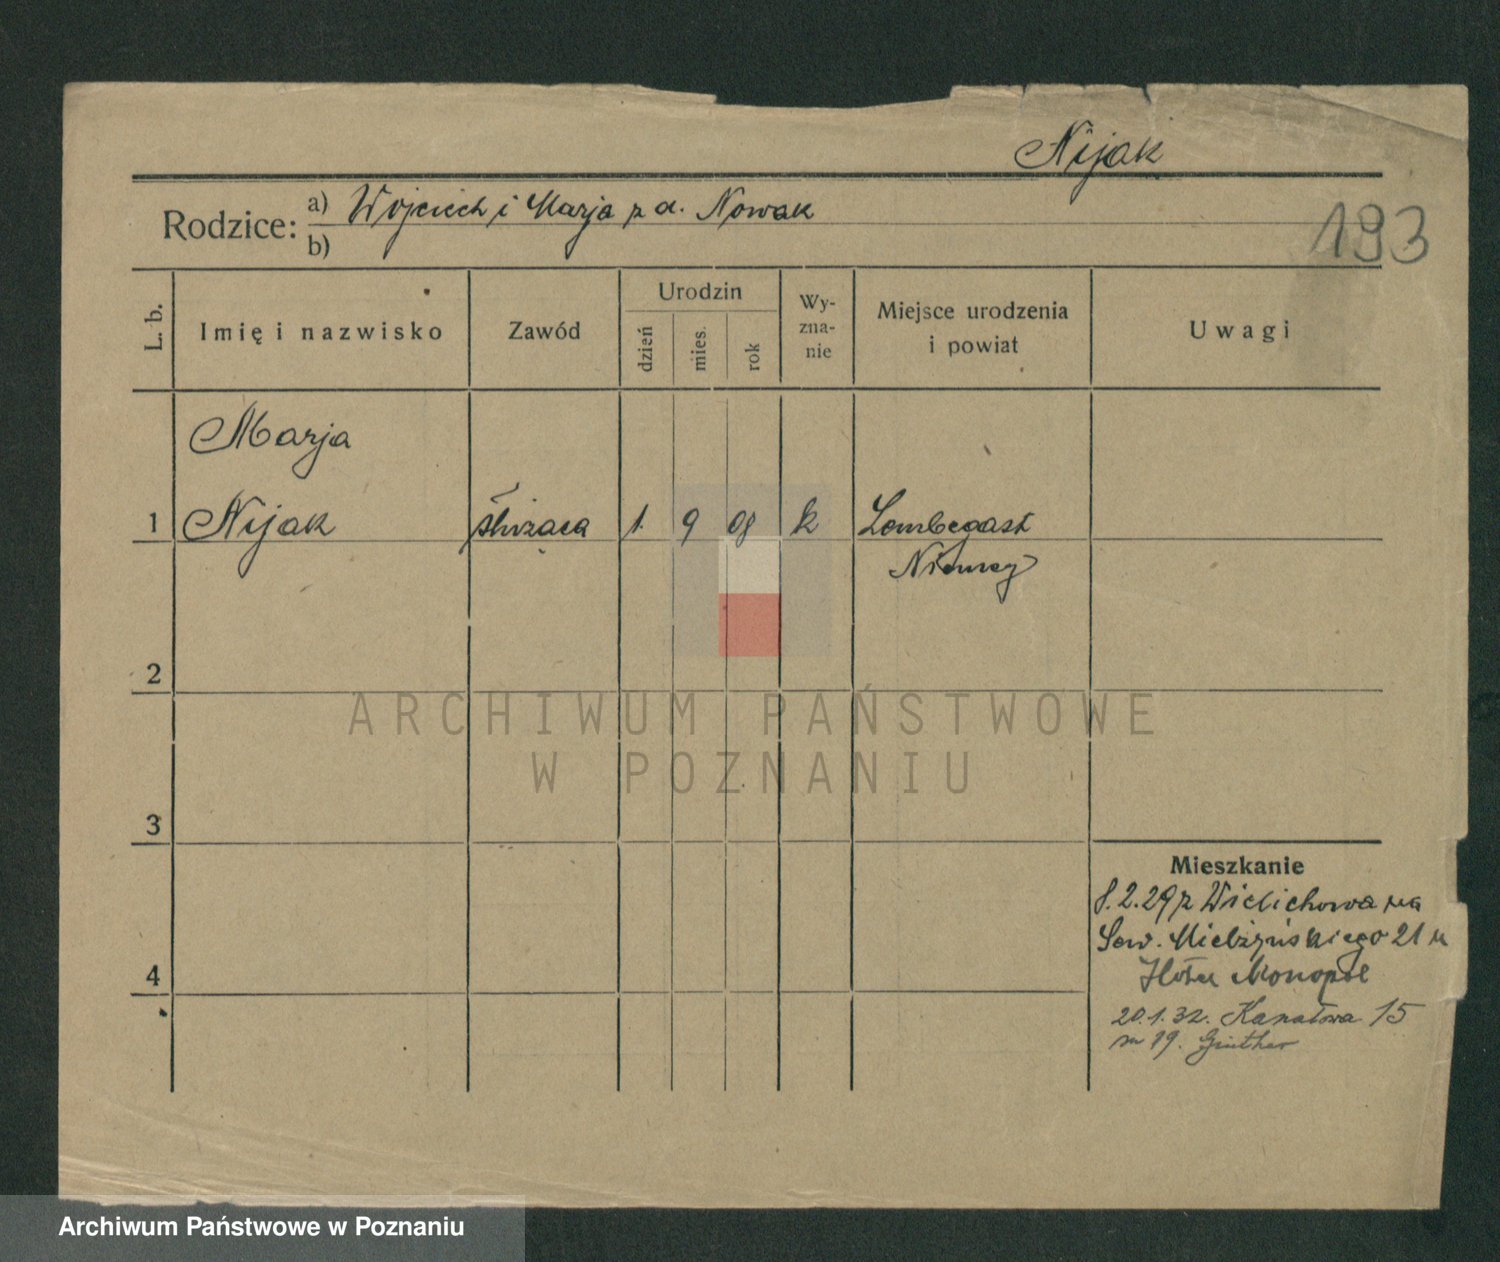 Nijak
Rodzice: a) Wojciech i Marja z d. Nowak
b)
193
L. b.
Imię i nazwisko
Zawód
Urodzin
dzień
mies.
rok
Wy-
zna-
nie
Miejsce urodzenia
i powiat
Uwagi
Marja
1 Nijak służąca 1. 9 08 k
Niemcy
2
ARCHIWUM PAŃSTWOWE
W POZNANIU
3
Mieszkanie
8.2.29 z Wielichowa na
Sew. Mielżyńskiego 21 u
Hotel Monopol
4
20.1.32. Kanałowa 15
m 19. Günther
Archiwum Państwowe w Poznaniu